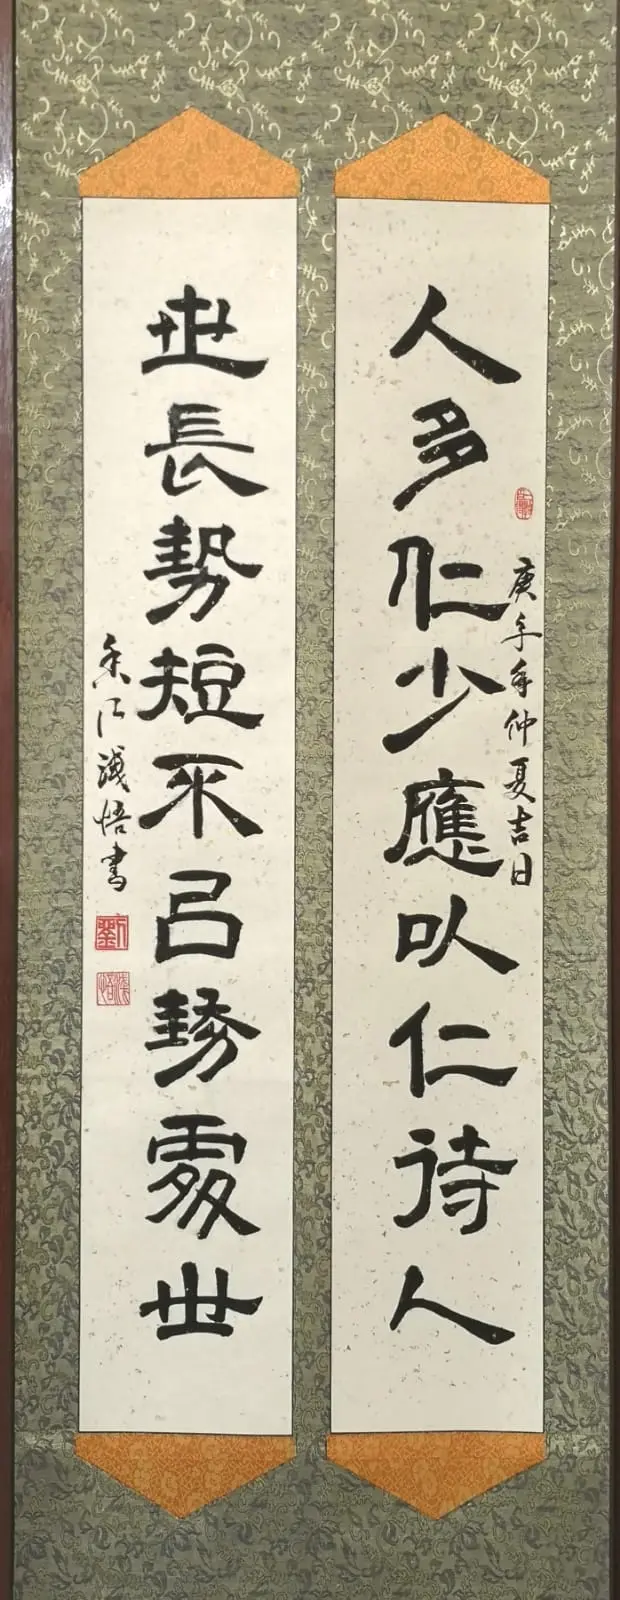 人多仁少應以仁待人
庚子年仲夏吉日
世長勢短不㠯勢處世
香江淺悟書
劉
淺悟